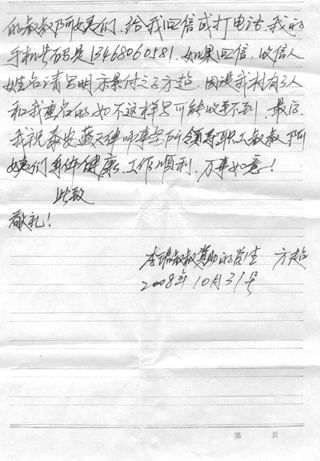 的叔叔阿姨们，给我回信或打电话，我的
手机号码是13468060581，如果回信，收信人
姓名请写明 方超，因为我村有3人
和我重名的，如不这样写可能收不到，最后
我祝泰安蓝天律师事务所领导职工叔叔阿
姨们身体健康，工作顺利，万事如意！
此致
敬礼！
李 叔叔资助的学生 方超
2008年10月31号
第 页